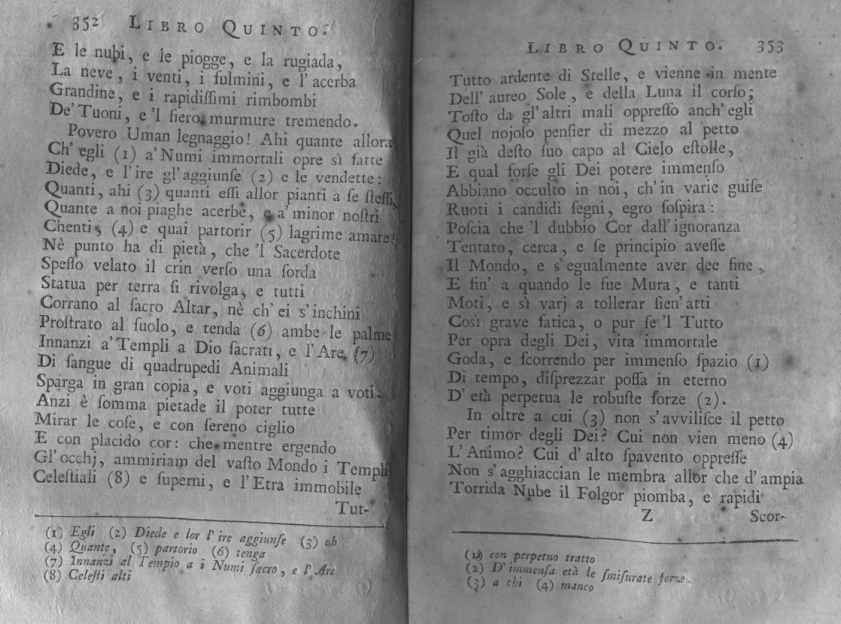 352 LIBRO QUINTO.
E le nubi, e le piogge, e la rugiada,
La neve, i venti, i fulmini, e l'acerba
Grandine, e i rapidiſſimi rimbombi
De'Tuoni, e 'l fiero murmure tremendo.
Povero Uman legnaggio! Ahi quante allora
Ch'egli (1) a'Numi immortali opre sì fatte
Diede, e l'ire gl'aggiunſe (2) e le vendette:
Quanti, ahi (3) quanti eſſi allor pianti a ſe ſteſſi,
Quante a noi piaghe acerbe, e a'minor noſtri
Chenti, (4) e quai partorir (5) lagrime amare!
Nè punto ha di pietà, che 'l Sacerdote
Speſſo velato il crin verſo una ſorda
Statua per terra ſi rivolga, e tutti
Corrano al ſacro Altar, nè ch'ei s'inchini
Proſtrato al ſuolo, e tenda (6) ambe le palme
Innanzi a'Templi a Dio ſacrati, e l'Are, (7)
Di ſangue di quadrupedi Animali
Sparga in gran copia, e voti aggiunga a voti.
Anzi è ſomma pietade il poter tutte
Mirar le coſe, e con ſereno ciglio
E con placido cor: che mentre ergendo
Gl'occhj, ammiriam del vaſto Mondo i Templi
Celeſtiali (8) e ſuperni, e l'Etra immobile
Tut-
(1) Egli (2) Diede e lor l'ire aggiunſe (3) oh
(4) Quante, (5) partorio (6) tenga
(7) Innanzi al Tempio a i Numi ſacro, e l'Are
(8) Celeſti alti
LIBRO QUINTO. 353
Tutto ardente di Stelle, e vienne in mente
Dell'aureo Sole, e della Luna il corſo;
Toſto da gl'altri mali oppreſſo anch'egli
Quel nojoſo penſier di mezzo al petto
Il già deſto ſuo capo al Cielo eſtolle,
E qual forſe gli Dei potere immenſo
Abbiano occulto in noi, ch'in varie guiſe
Ruoti i candidi ſegni, egro ſoſpira:
Poſcia che 'l dubbio Cor dall'ignoranza
Tentato, cerca, e ſe principio aveſſe
Il Mondo, e s'egualmente aver dee fine,
E fin' a quando le ſue Mura, e tanti
Moti, e sì varj a tollerar ſien'atti
Così grave fatica, o pur ſe 'l Tutto
Per opra degli Dei, vita immortale
Goda, e ſcorrendo per immenſo ſpazio (1)
Di tempo, diſprezzar poſſa in eterno
D'età perpetua le robuſte forze (2).
In oltre a cui (3) non s'avviliſce il petto
Per timor degli Dei? Cui non vien meno (4)
L'Animo? Cui d'alto ſpavento oppreſſe
Non s'agghiaccian le membra allor che d'ampia
Torrida Nube il Folgor piomba, e rapidi
Z Scor-
(1) con perpetuo tratto
(2) D'immenſa età le ſmiſurate forze.
(3) a chi (4) manco